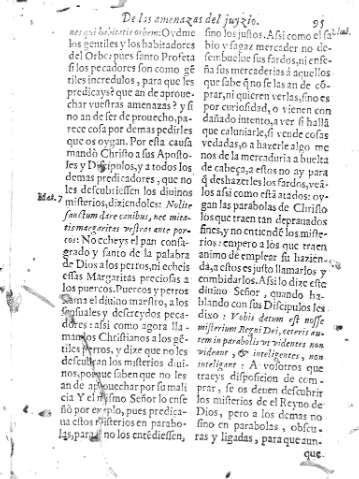 De las amenazas del juyzio. 95
nes qui habitatis orbem: Oydme
los gentiles y los habitadores
del Orbe: pues santo Profeta
si los pecadores son como gē
tiles incredulos, para que les
predicays? que an de aproue-
char vuestras amenazas? y si
no an de ser de prouecho, pa-
rece cosa por demas pedirles
que os oygan. Por esta causa
mandò Christo a sus Aposto-
les y Discipulos, y a todos los
demas predicadores, que no
les descubriessen los diuinos
Mat. 7
misterios, diziendoles: Nolite
sanctum dare canibus, nec mita-
tis margaritas vestras ante por-
cos: No echeys el pan consa-
grado y santo de la palabra
de Dios a los perros, ni echeis
essas Margaritas preciosas a
los puercos. Puercos y perros
llama el diuino maestro, a los
sensuales y descreydos peca-
dores: assi como agora lla-
man los Christianos a los gē-
tiles perros, y dize que no les
descubran los misterios diui-
nos, porque saben que no les
an de aprouechar por su mali
cia Y el mismo Señor lo ense
ñò por exemplo, pues predica-
ua estos misterios en parabo-
las, para no los entēdiessen,
sino los justos. Assi como el sa
bio y sagaz mercader no de-
sembuelue sus fardos, ni ense-
ña sus mercaderias à aquellos
que sabe q̃ no se las an de cō-
prar, ni quieren verlas, sino es
por curiosidad, o vienen con
dañado intento, a ver si hallā
que caluniarle, si vende cosas
vedadas, o a hazerle algo me
nos de la mercaduria a buelta
de cabeça, a estos no ay para
q̃ deshazerles los fardos, veā-
los assi como està atados: oy-
gan las parabolas de Christo
los que traen tan deprauados
fines, y no entiendē los miste-
rios: empero a los que traen
animo dē emplear su hazien-
da, a estos es justo llamarlos y
combidarlos. Assi lo dize este
diuino Señor, quando ha-
blando con sus Discipulos les
dixo: Vobis datum est nosse
misterium Regni Dei, ceteris au-
tem in parabolis vt videntes non
videant, & intelligentes, non
intelligant: A vosotros que
traeys disposicion de com-
prar, se os deuen descubrir
los misterios de el Reyno de
Dios, pero a los demas no
sino en parabolas, obscu-
ras y ligadas, para que aun-
que